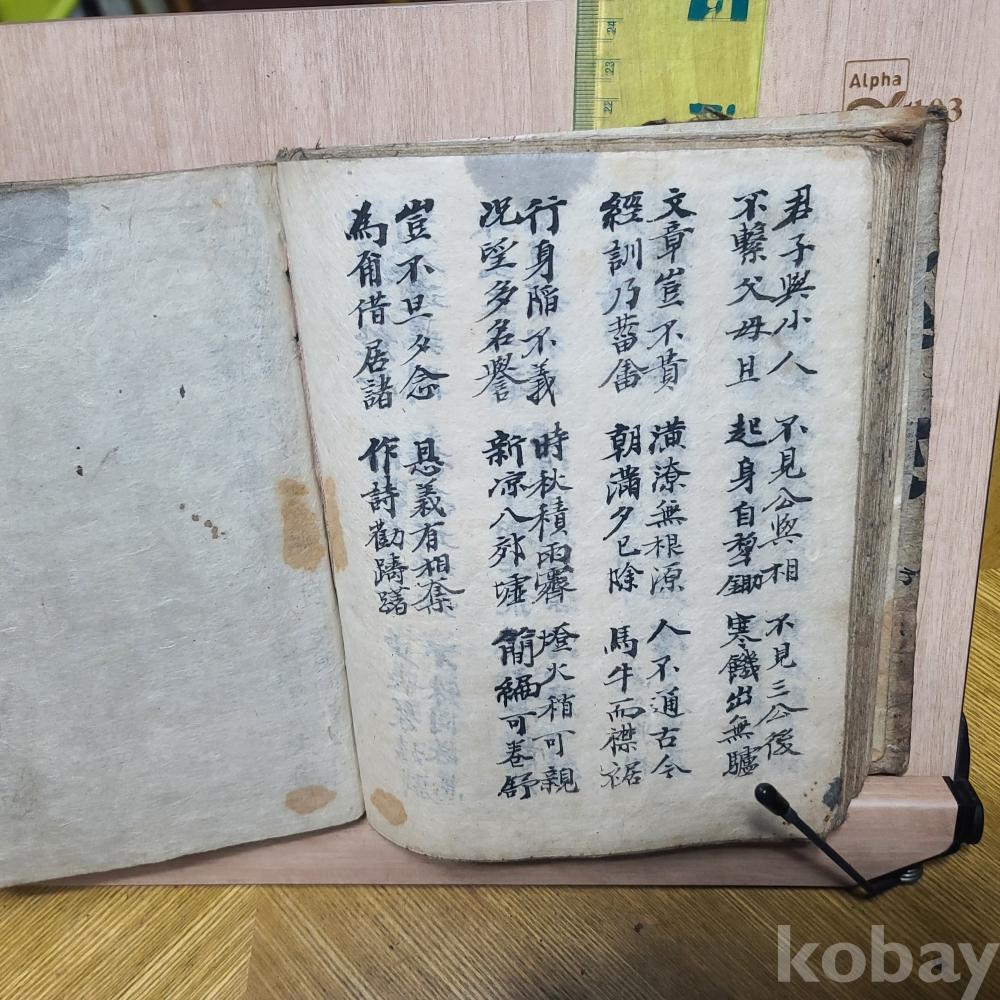 君子與小人
不繫父母且
不見公與相
起身自犂鋤
不見三公後
寒饑出無驢
文章豈不貴
經訓乃蓄畬
潢潦無根源
朝滿夕已除
人不通古今
馬牛而襟裾
行身陷不義
况望多名譽
時秋積雨霽
新凉八郊墟
燈火稍可親
簡編可卷舒
豈不旦夕念
為爾借居諸
恩義有相奪
作詩勸躊躇
Alpha
193
24
23
22
kobay